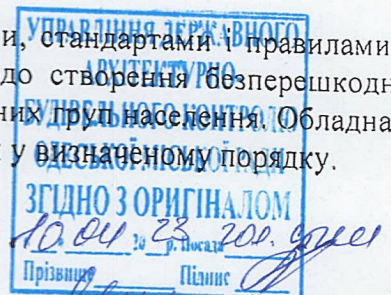 и, стандартами і правилами
до створення безперешкодн
них груп населення. Обладна
у визначеному порядку.
УПРАВЛІННЯ ДЕРЖАВНОГО
АРХІТЕКТУРНО-
БУДІВЕЛЬНОГО КОНТРОЛЮ
ОДЕСЬКОЇ МІСЬКОЇ РАДИ
ЗГІДНО З ОРИГІНАЛОМ
10 04 20 23 р. Посада
Прізвище Підпис